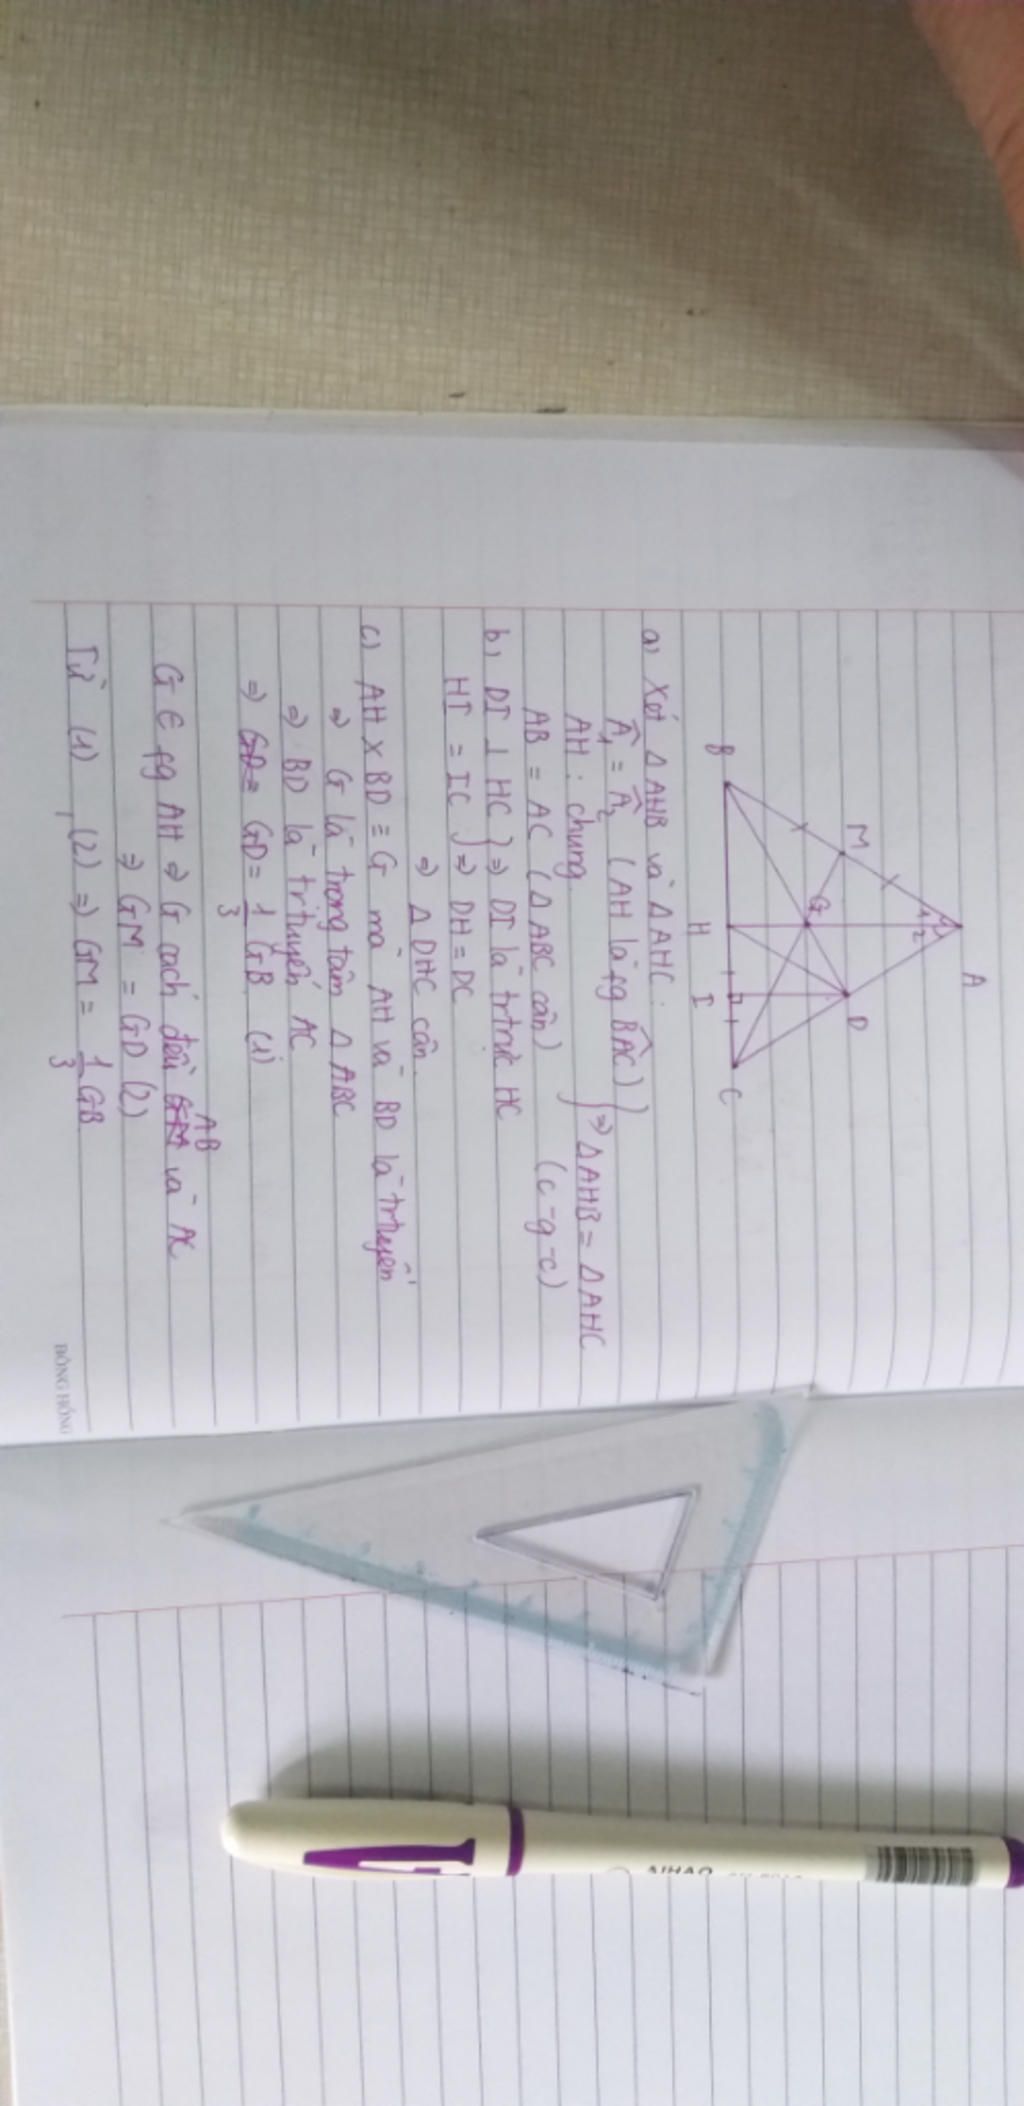 A
M
1 2
D
G
B
H
I
C
a) Xét Δ AHB và Δ AHC :
Â1 = Â2 ( AH là fg BÂC )
AH : chung
AB = AC ( Δ ABC cân )
} ⇒ Δ AHB = Δ AHC
(c-g-c)
b, DI ⊥ HC } ⇒ DI là tr trực HC
HI = IC } ⇒ DH = DC
⇒ Δ DHC cân.
c) AH x BD ≡ G mà AH và BD là tr tuyến
⇒ G là trọng tâm Δ ABC
⇒ BD là tr tuyến AC
⇒ GD = 1/3 GB (1)
G ∈ fg AH ⇒ G cách đều AB và AC
⇒ GM = GD (2)
Từ (1), (2) ⇒ GM = 1/3 GB
HỒNG HỒNG
AIHAO